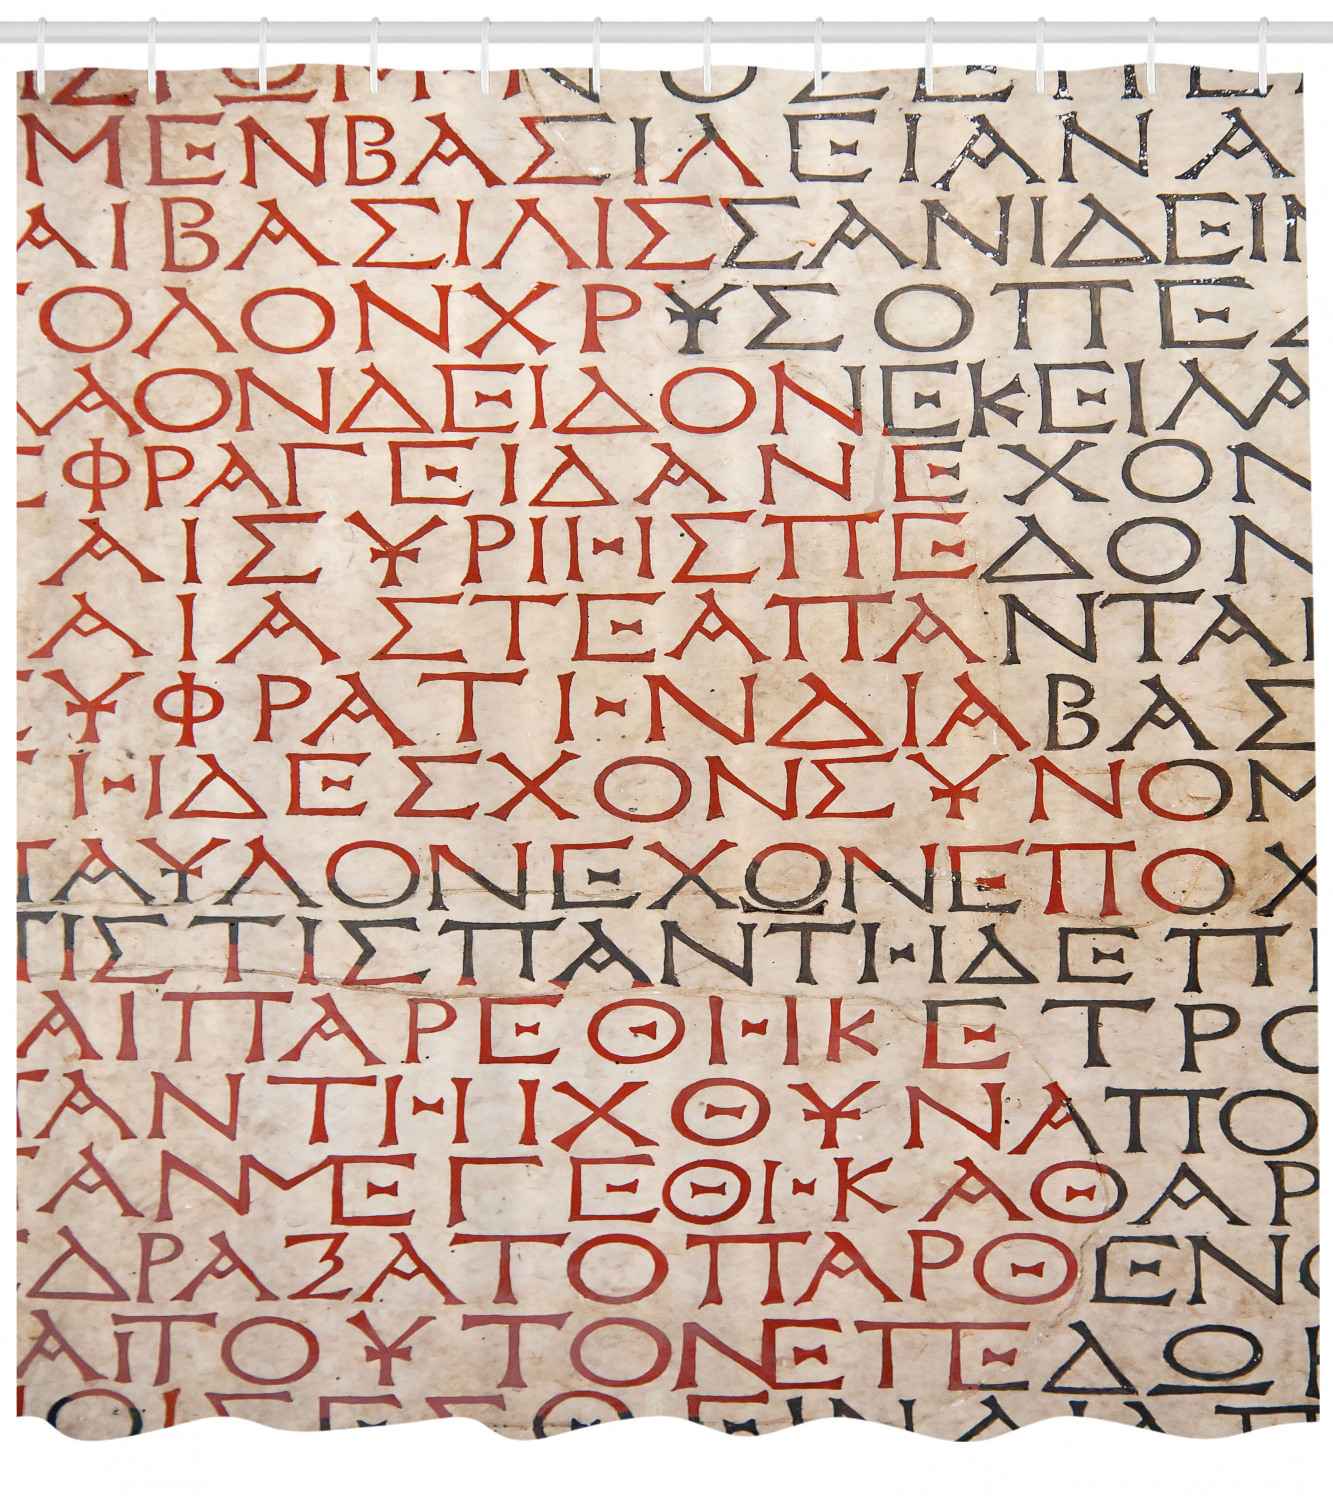 ΜΕΝΒΑΣΙΛΕΙΑΝΑ
ΑΙΒΑΣΙΛΙΣΣΑΝΙΔΕΙΝ
ΟΛΟΝΧΡΥΣΟΠΕΔ
ΛΑΟΝΔΕΙΔΟΝΕΚΕΙΛΑ
ΣΦΡΑΓΕΙΔΑΝΕΧΟΝ
ΑΙΣΥΡΙΗΣΠΕΔΟΝ
ΑΙΑΣΤΕΑΠΑΝΤΑΙ
ΕΥΦΡΑΤΗΝΔΙΑΒΑΣ
ΗΔΕΣΧΟΝΣΥΝΟΜ
ΤΑΥΛΟΝΕΧΩΝΕΠΟΧ
ΠΙΣΤΙΣΠΑΝΤΗΔΕΠ
ΑΙΠΑΡΕΘΗΚΕΤΡΟ
ΠΑΝΤΗΙΧΘΥΝΑΠΟ
ΓΑΝΜΕΓΕΘΗΚΑΘΑΡ
ΕΔΡΑΞΑΤΟΠΑΡΘΕΝΟ
ΑΙΤΟΥΤΟΝΕΠΕΔΩΚ